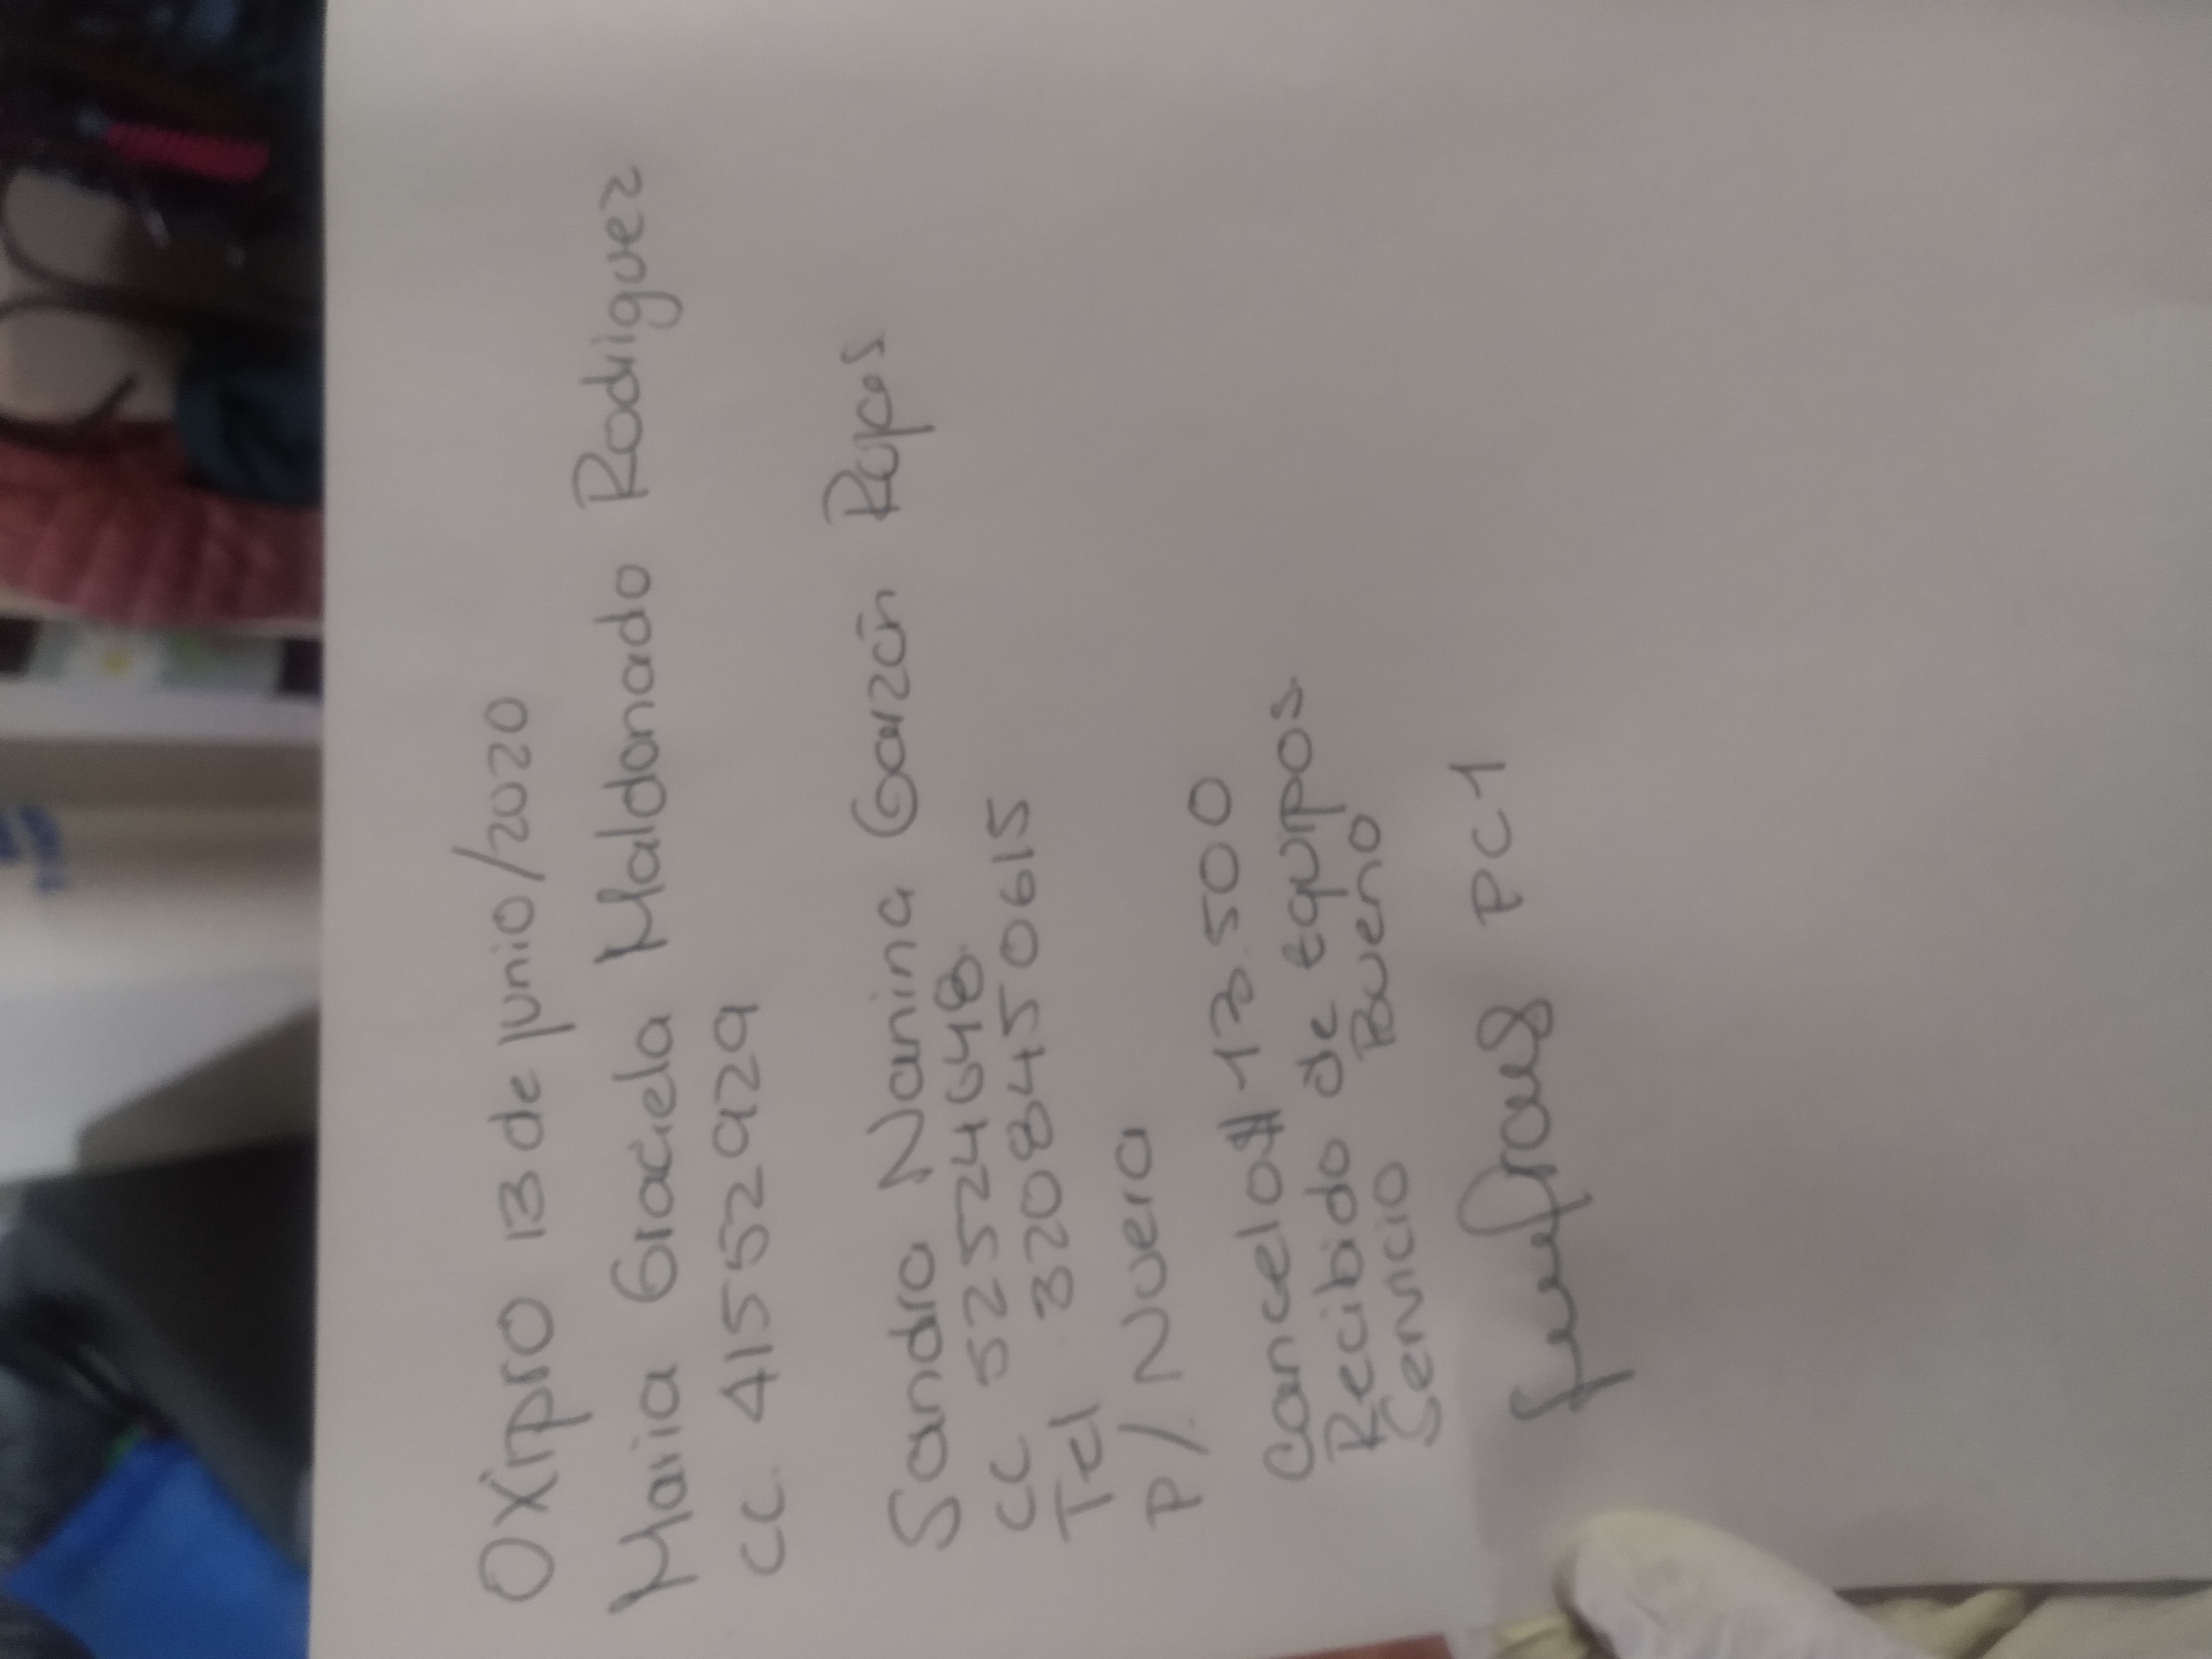 Oxipro 13 de junio/2020
Maria Graciela Maldonado Rodriguez
CC. 41552929
Sandra Nanina Garzón
CC 52524648
Tel. 3208450615
P/. Nuera
Cancelo $ 13.500
Recibido de equipos.
Servicio Bueno
PC1